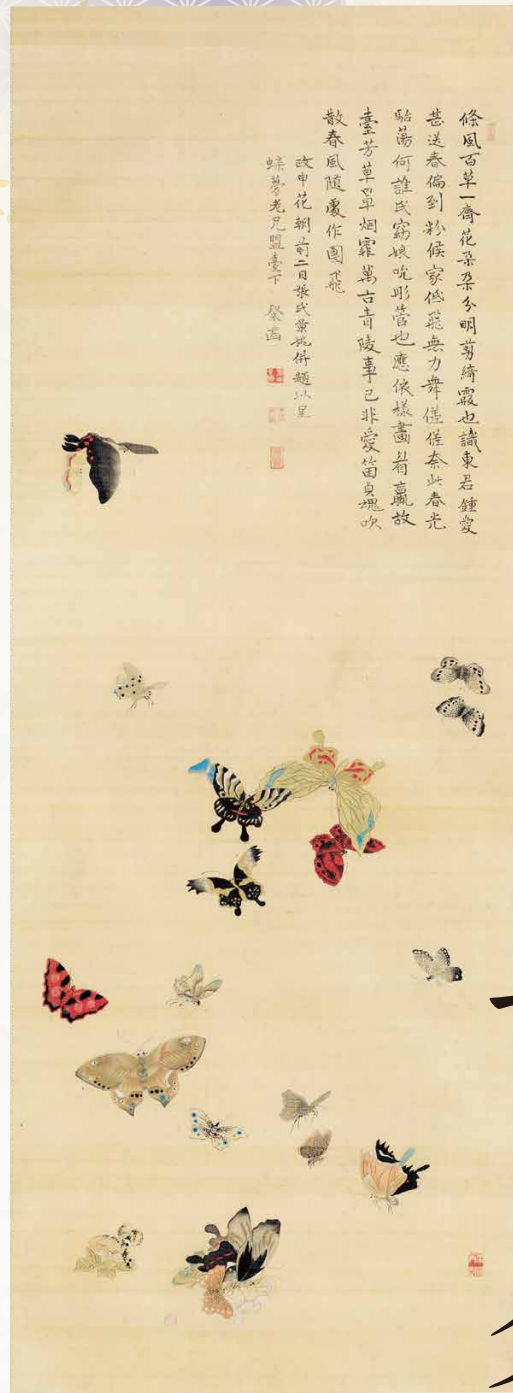 條風百草一齊花朶朶分明剪綺霞也識東君鍾愛
甚送春偏到粉候家低飛無力舞傞傞奈此春光
駘蕩何誰氏窈娘吮彤管也應依樣畫眉羸故
臺芳草罩烟霏萬古青陵事已非愛笛貞魂吹
散春風隨處作團飛
申花朝前二日張氏景倂題以呈
蝶夢老兄盟臺下